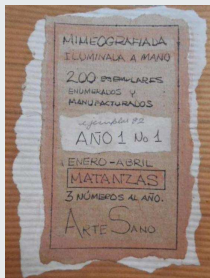 MIMEOGRAFIADA
ILUMINADA A MANO
200 EJEMPLARES
ENUMERADOS Y
MANUFACTURADOS
AÑO 1 No 1
ENERO-ABRIL
MATANZAS
3 NÚMEROS AL AÑO.
ARTESANO